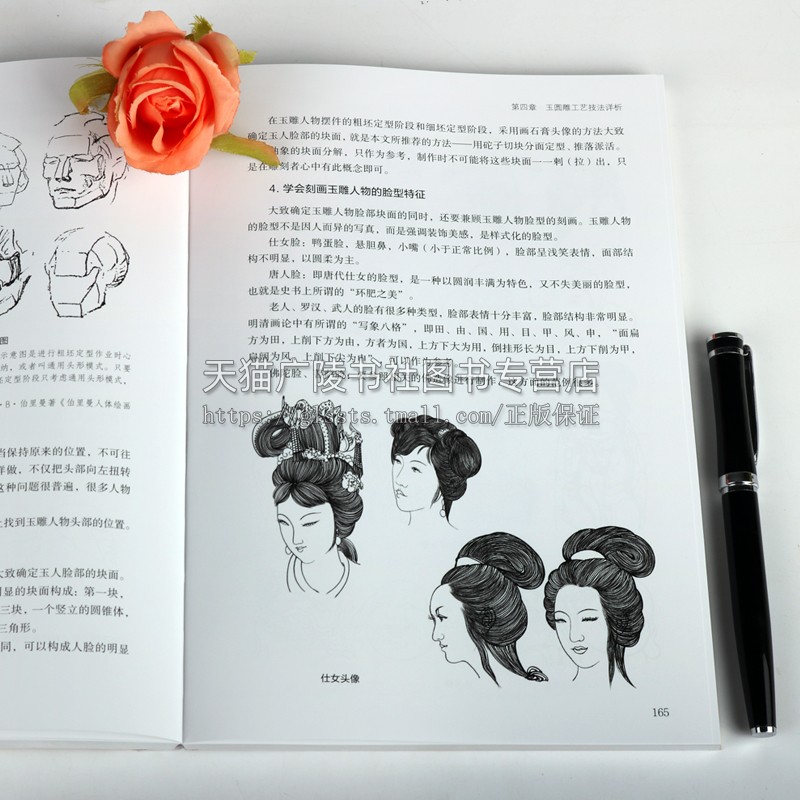 图
示意图是进行粗坯定型作业时心
纳，或者叫通用头形模式。只要
定型阶段只考虑通用头形模式，
·B·伯里曼著《伯里曼人体绘画
当保持原来的位置，不可往
样做，不仅把头部向左扭转
这种问题很普遍，很多人物
找到玉雕人物头部的位置。
大致确定玉人脸部的块面。
明显的块面构成：第一块，
三块，一个竖立的圆锥体，
三角形。
同，可以构成人脸的明显
第四章 玉圆雕工艺技法详析
在玉雕人物摆件的粗坯定型阶段和细坯定型阶段，采用画石膏头像的方法大致
确定玉人脸部的块面，就是本文所推荐的方法——用砣子切块分面定型、推落派活。
抽象的块面分解，只作为参考，制作时不可能将这些块面一一剩（拉）出，只
是在雕刻者心中有此概念即可。
4. 学会刻画玉雕人物的脸型特征
大致确定玉雕人物脸部块面的同时，还要兼顾玉雕人物脸型的刻画。玉雕人物
的脸型不是因人而异的写真，而是强调装饰美感，是样式化的脸型。
仕女脸：鸭蛋脸，悬胆鼻，小嘴（小于正常比例），脸部呈浅笑表情，面部结
构不明显，以圆柔为主。
唐人脸：即唐代仕女的脸型，是一种以圆润丰满为特色，又不失美丽的脸型，
也就是史书上所谓的“环肥之美”。
老人、罗汉、武人的脸有很多种类型，脸部表情十分丰富，脸部结构非常明显。
明清画论中有所谓的“写象八格”，即田、由、国、用、目、甲、风、申，“面扁
方为田，上削下方为由，方者为国，上方下大为用，倒挂形长为目，上方下削为甲，
扁阔为风，上削下尖为申”，可以作为参考。
天猫广陵书社图书专营店
https://glssts.tmall.com/正版保证
仕女头像
165